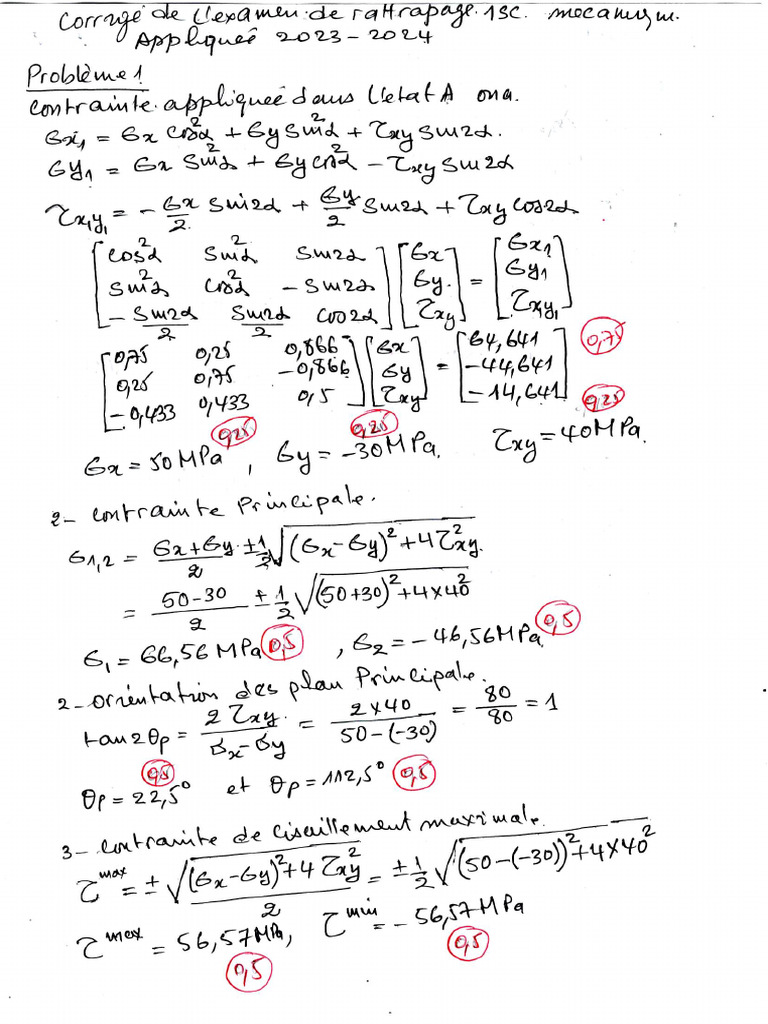 Corrigé de L'examen de rattrapage 1SC. mecanique.
Appliqueé 2023-2024
Problème 1
contrainte appliqueé dans L'etat A ona.
σx₁ = σx cos²α + σy sin²α + τxy sin2α.
σy₁ = σx sin²α + σy cos²α - τxy sin2α
τx₁y₁ = - σx/2 sin2α + σy/2 sin2α + τxy cos2α
[cos²α sin²α sin2α] [σx] = [σx₁]
[sin²α cos²α - sin2α] [σy] [σy₁]
[- sin2α/2 sin2α/2 cos2α] [τxy] [τx₁y₁]
[0,75 0,25 0,866] [σx] = [64,641] 0,75
[0,25 0,75 -0,866] [σy] [-44,641]
[-0,433 0,433 0,5] [τxy] [-14,641] 0,25
0,25 0,25
σx = 50 MPa , σy = -30 MPa. τxy = 40 MPa.
2- contrainte Principale.
σ1,2 = (σx+σy)/2 ± 1/2 √((σx-σy)² + 4τ²xy)
= (50-30)/2 ± 1/2 √((50+30)² + 4×40²)
σ₁ = 66,56 MPa 0,5 , σ₂ = - 46,56 MPa 0,5
2- orientation des plan Principale.
tan2θp = 2τxy/(σx-σy) = 2×40/(50-(-30)) = 80/80 = 1
0,5
θp = 22,5° et θp = 112,5° 0,5
3- contrainte de cisaillement maximale.
τmax = ± √((σx-σy)² + 4τ²xy)/2 = ± 1/2 √((50-(-30))² + 4×40²
τmax = 56,57 MPa, τmin = - 56,57 MPa
0,5 0,5